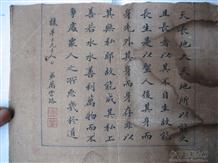 天長地久天地所以能
且長者以其不自生故能
長生是以聖人後其身而
身先外其身而身存非以其
無私邪故能成其私上
善若水水善利萬物而不
爭處衆人之所惡故幾於道
弟萬雲路